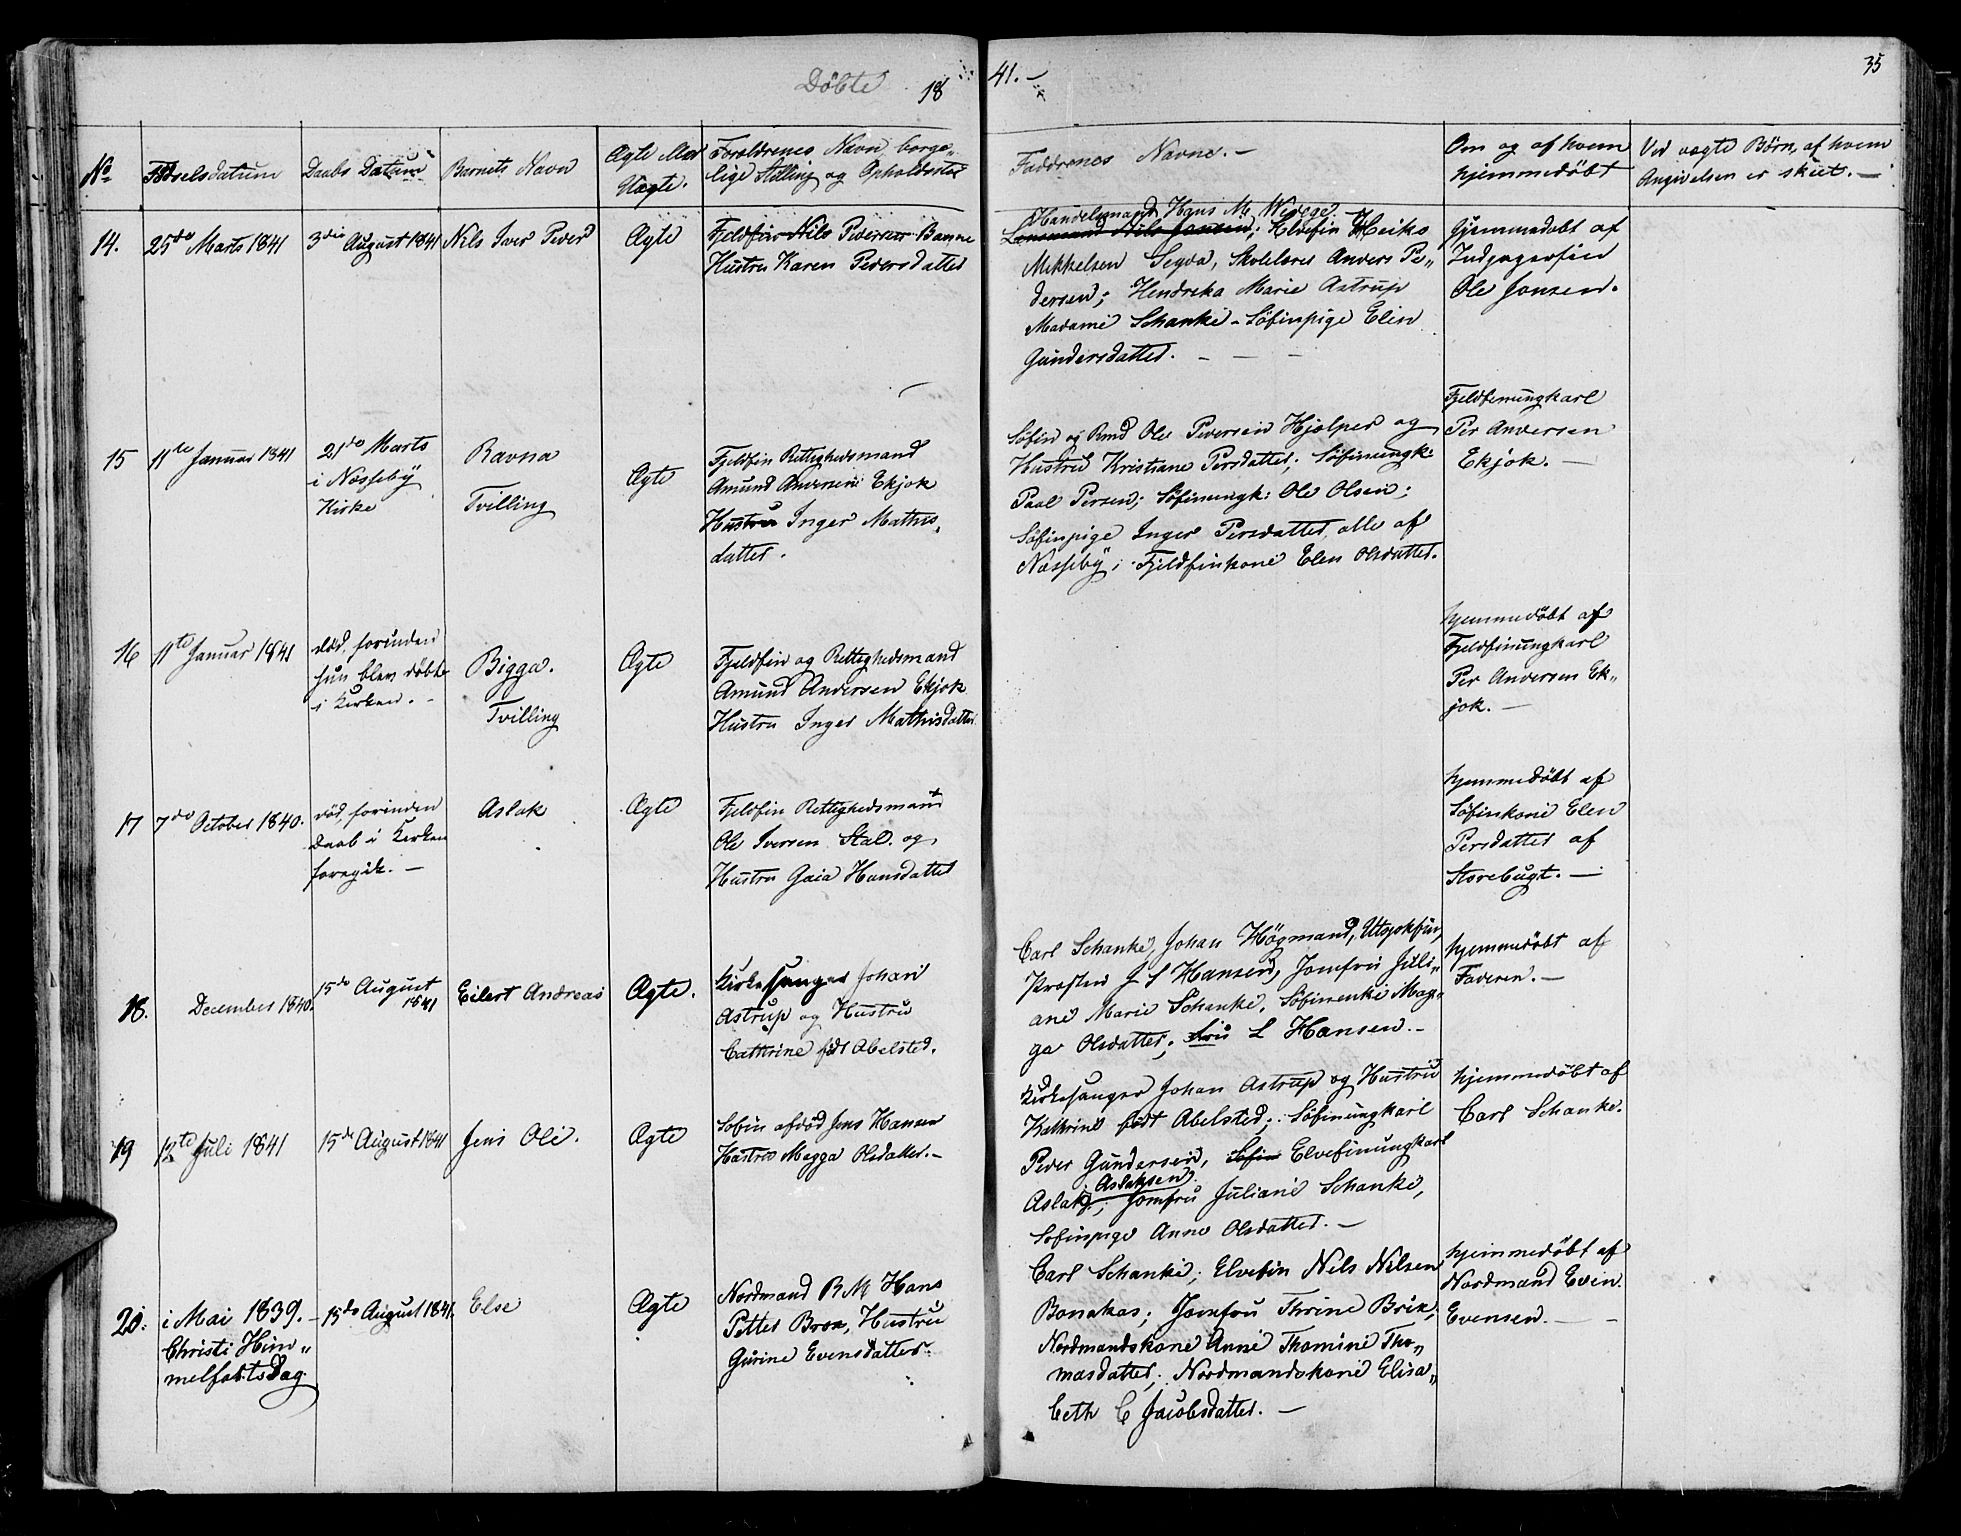 Döbte 1841.
35
No
Födselsdatum
Daabs Datum
Barnets Navn
Ægte eller
Uægte.
Forældrenes Navn, borge„
lige Stilling og Opholdssted
Faddrenes Navne. —
Om og af hvem
hjemmedöbt
Ved uægte Børn, af hvem
Angivelsen er skeet. —
14.
25de Marts 1841
3die August 1841
Nils Iver Peder
Ægte
Fjeldfin Nils Pedersen Banne
Hustru Karen Pedersdatter
Handelsmand Hans M.
Lensmand Nils Jansen; Elvefin Heike
Mikkelsen Seyda, Skolelærer Anders Pe„
dersen; Hendreka Marie Astrup
Madame Schanke - Söfinpige Elen
Gundersdatter. — — —
Hjemmedøbt af
Ole Jonsen.
15
11te Januar 1841
21de Marts
i Næsseby
Kirke
Ravna
Tvilling
Ægte
Fjeldfin Rettighedsmand
Amund Andersen Ekjok
Hustru Inger Mathis„
datter.
Söfin og Rmd Ole Pedersen Hjelper og
Hustru Kristiane Persdatter; Söfinungk:
Paal Persen; Söfinungk: Ole Olsen;
Söfinpige Inger Persdatter, alle af
Næsseby; Fjeldfinkone Elen Olsdatter.
Fjeldfinungkarl
Per Andersen
Ekjok. —
16
11te Januar 1841
död, forinden
hun blev döbt
i Kirken. -
Bigga.
Tvilling
Ægte
Fjeldfin og Rettighedsmand
Amund Andersen Ekjok
Hustru Inger Mathisdatter
hjemmedöbt af
Fjeldfinungkarl
Per Andersen Ek„
jok. —
17
7de October 1840.
död, forinden
Daab i Kirken
foregik. —
Aslak
Ægte
Fjeldfin Rettighedsmand
Ole Iversen Stal. og
Hustru Gaia Hansdatter
hjemmedöbt af
Söfinkone Elen
Persdatter af
Storebugt. —
18.
December 1840.
15de August
1841
Eilert Andreas
Ægte.
Kirkesanger Johan
Astrup og Hustru
Cathrine födt Abelsted.
Carl Schanke, Johan Högmand, Utsjokfin,
Prosten J S Hansen, Jomfru Juli„
ane Marie Schanke, Söfinenke Mag„
ga Olsdatter; L Hansen. -
hjemmedöbt af
Faderen. —
19
12te Juli 1841
15de August 1841
Jens Ole.
Ægte
Söfin afdöd Jens Hansen
Hustru Magga Olsdatter. —
Kirkesanger Johan Astrup og Hustru
Kathrine födt Abelsted; Söfinungkarl
Peder Gundersen, Söfin Elvefinungkarl
Aslaksen
Aslak; Jomfru Juliane Schanke,
Söfinpige Anne Olsdatter. —
hjemmedöbt af
Carl Schanke.
20.
i Mai 1839. —
Christi Him„
melfartsDag.
15de August 1841.
Else
Ægte
Nordmand R M Hans
Petter Brox, Hustru
Gurine Evensdatter.
Carl Schanke; Elvefin Nils Nilsen
Bonakas; Jomfru Thrine Brix;
Nordmandskone Anne Thomine Tho„
masdatter; Nordmandskone Elisa„
beth C Jacobsdatter. —
hjemmedöbt af
Nordmand Even
Evensen. —